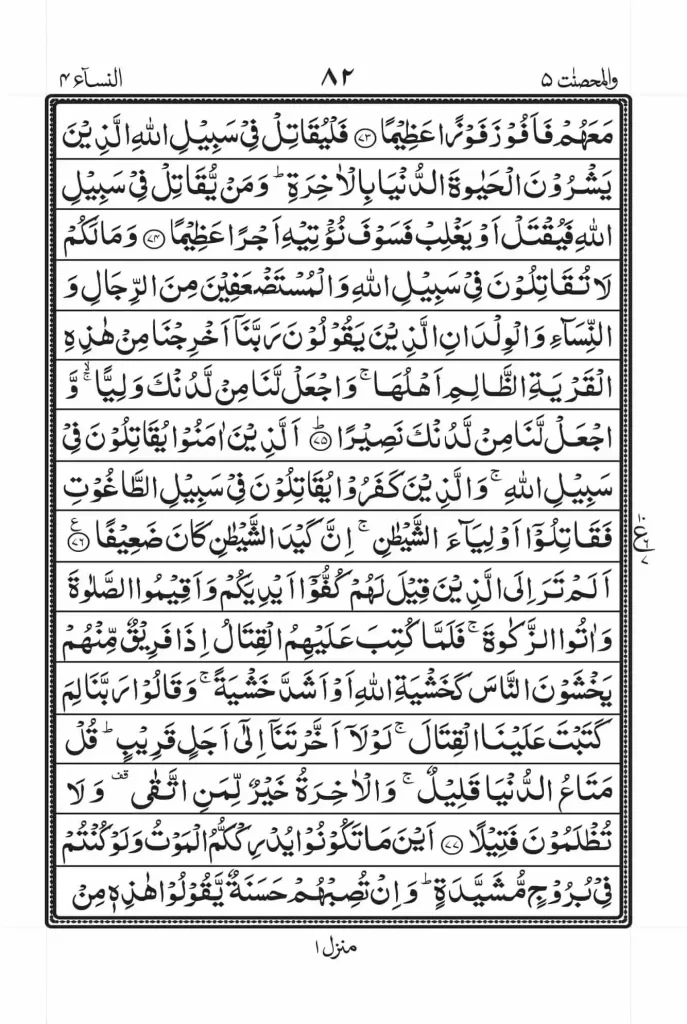 والمحصنٰت ۵ ۸۲ النسآء ۴
مَعَهُمْ فَاَفُوْزَ فَوْزًا عَظِیْمًا ۝۷۳ فَلْیُقَاتِلْ فِیْ سَبِیْلِ اللّٰهِ الَّذِیْنَ
یَشْرُوْنَ الْحَیٰوةَ الدُّنْیَا بِالْاٰخِرَةِ ؕ وَمَنْ یُّقَاتِلْ فِیْ سَبِیْلِ
اللّٰهِ فَیُقْتَلْ اَوْ یَغْلِبْ فَسَوْفَ نُؤْتِیْهِ اَجْرًا عَظِیْمًا ۝۷۴ وَمَا لَكُمْ
لَا تُقَاتِلُوْنَ فِیْ سَبِیْلِ اللّٰهِ وَالْمُسْتَضْعَفِیْنَ مِنَ الرِّجَالِ وَ
النِّسَآءِ وَالْوِلْدَانِ الَّذِیْنَ یَقُوْلُوْنَ رَبَّنَاۤ اَخْرِجْنَا مِنْ هٰذِهِ
الْقَرْیَةِ الظَّالِمِ اَهْلُهَا ۚ وَاجْعَلْ لَّنَا مِنْ لَّدُنْكَ وَلِیًّا ۙۚ وَّ
اجْعَلْ لَّنَا مِنْ لَّدُنْكَ نَصِیْرًا ؕ۝۷۵ اَلَّذِیْنَ اٰمَنُوْا یُقَاتِلُوْنَ فِیْ
سَبِیْلِ اللّٰهِ ۚ وَالَّذِیْنَ كَفَرُوْا یُقَاتِلُوْنَ فِیْ سَبِیْلِ الطَّاغُوْتِ
فَقَاتِلُوْۤا اَوْلِیَآءَ الشَّیْطٰنِ ۚ اِنَّ كَیْدَ الشَّیْطٰنِ كَانَ ضَعِیْفًا ۝۷۶ ع
۱۰ ع ۶ ۷
اَلَمْ تَرَ اِلَی الَّذِیْنَ قِیْلَ لَهُمْ كُفُّوْۤا اَیْدِیَكُمْ وَاَقِیْمُوا الصَّلٰوةَ
وَاٰتُوا الزَّكٰوةَ ۚ فَلَمَّا كُتِبَ عَلَیْهِمُ الْقِتَالُ اِذَا فَرِیْقٌ مِّنْهُمْ
یَخْشَوْنَ النَّاسَ كَخَشْیَةِ اللّٰهِ اَوْ اَشَدَّ خَشْیَةً ۚ وَقَالُوْا رَبَّنَا لِمَ
كَتَبْتَ عَلَیْنَا الْقِتَالَ ۚ لَوْلَاۤ اَخَّرْتَنَاۤ اِلٰۤی اَجَلٍ قَرِیْبٍ ؕ قُلْ
مَتَاعُ الدُّنْیَا قَلِیْلٌ ۚ وَالْاٰخِرَةُ خَیْرٌ لِّمَنِ اتَّقٰی قف وَلَا
تُظْلَمُوْنَ فَتِیْلًا ۝۷۷ اَیْنَ مَا تَكُوْنُوْا یُدْرِكْكُّمُ الْمَوْتُ وَلَوْ كُنْتُمْ
فِیْ بُرُوْجٍ مُّشَیَّدَةٍ ؕ وَاِنْ تُصِبْهُمْ حَسَنَةٌ یَّقُوْلُوْا هٰذِهٖ مِنْ
منزل ۱